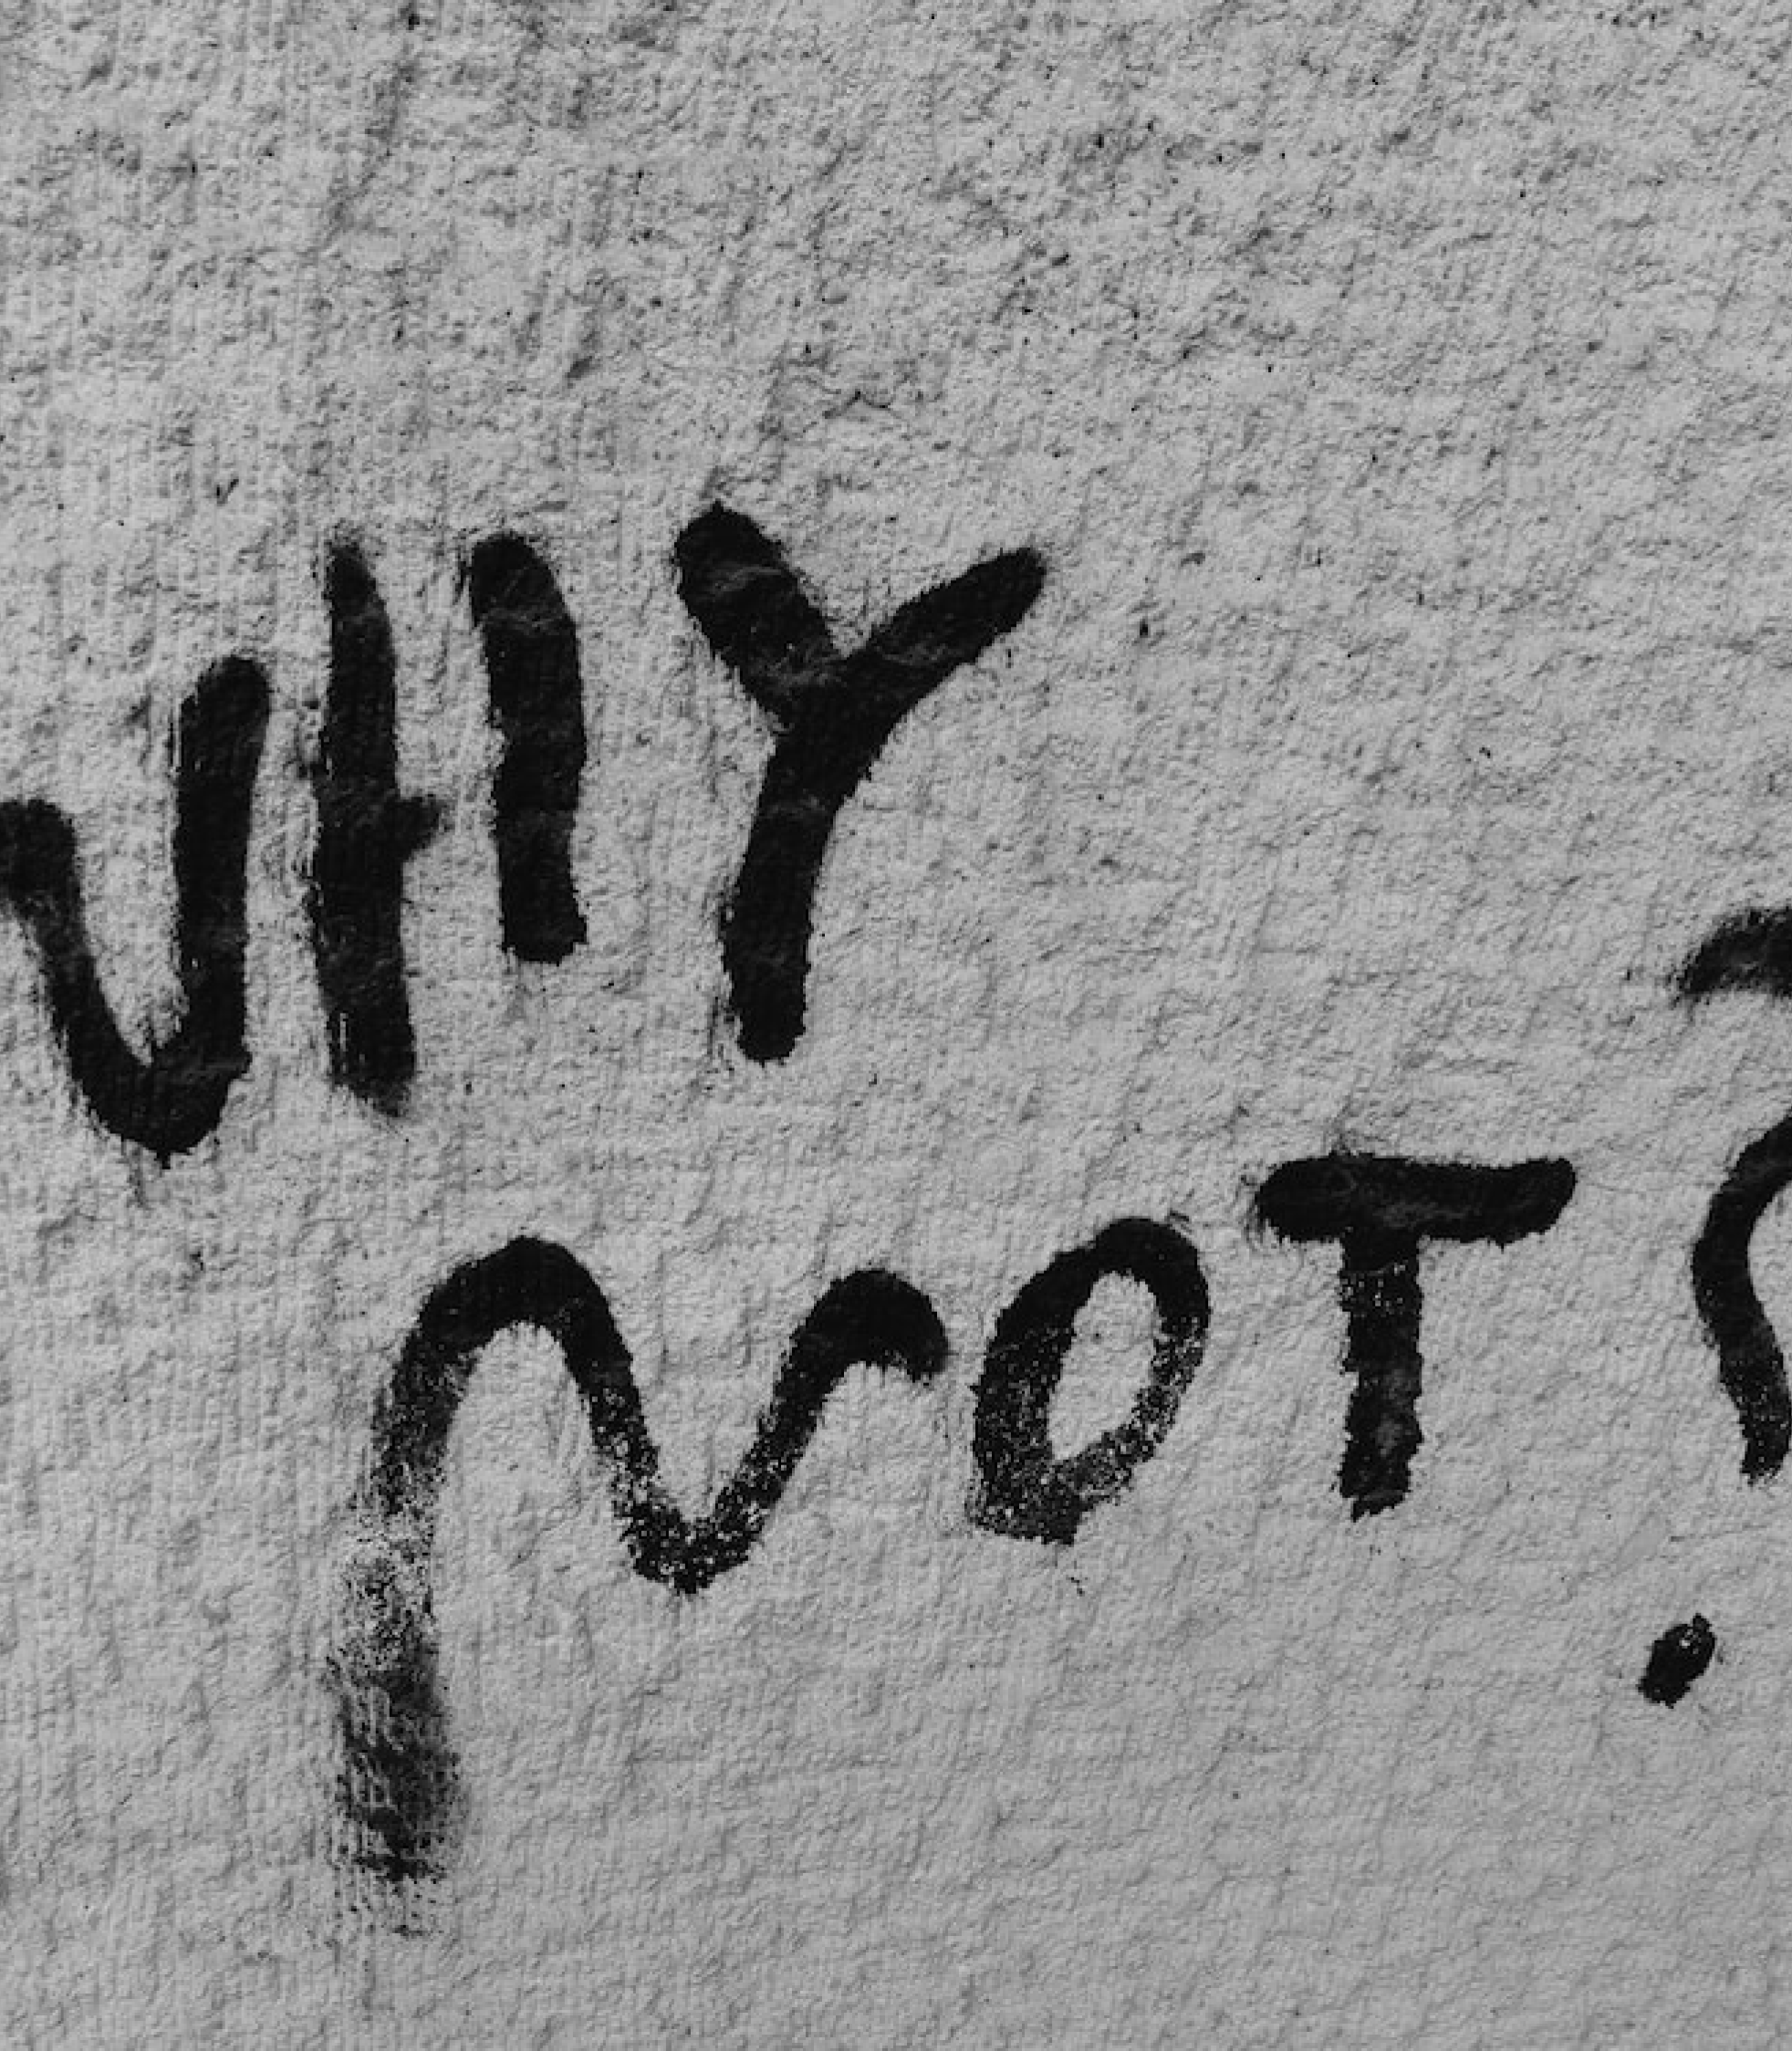 WHY
NOT?